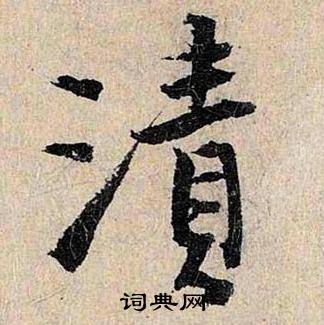 漬
词典网